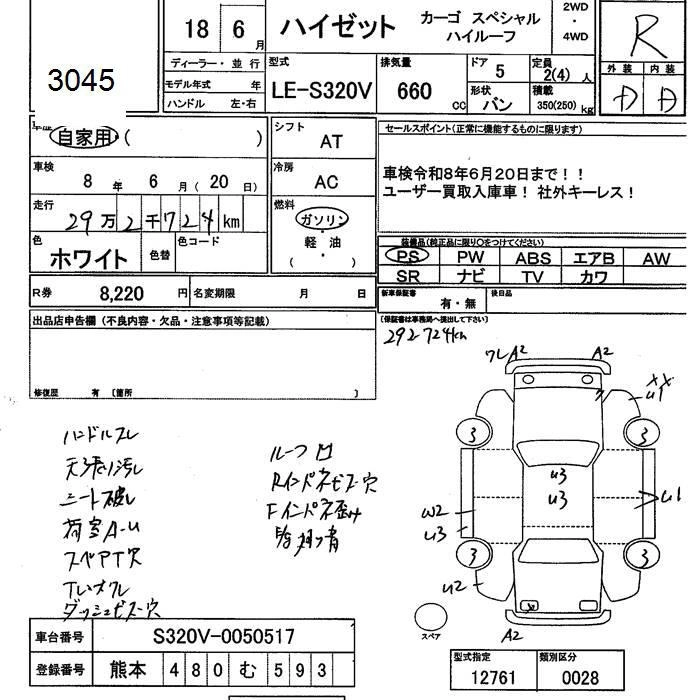 3045
18 6 月
ハイゼット
カーゴ スペシャル
ハイルーフ
2WD
・
4WD
R
ディーラー・並行
モデル年式 年
ハンドル 左・右
型式
LE-S320V
排気量
660 cc
ドア
5
形状
バン
定員
2(4) 人
積載
350(250) kg
外装 内装
D D
自家用・( )
シフト
AT
車検
8 年 6 月 ( 20 日)
冷房
AC
走行
29万2千724km
燃料
ガソリン
・
軽油
・
( )
色
ホワイト
色替
色コード
R券 8,220 円
名変期限 月 日
セールスポイント(正常に機能するものに限ります)
車検令和8年6月20日まで！！
ユーザー買取入庫車！ 社外キーレス！
装備品(純正品に限り○をつけてください)
PS PW ABS エアB AW
SR ナビ TV カワ
新車保証書
有・無
後日品
(保証書は事務局へ提出して下さい)
292724km
出品店申告欄 (不良内容・欠品・注意事項等記載)
修復歴 有 〔箇所 〕
ハンドルスレ
天張り汚れ
シート破れ
荷室A-U
スペアT穴
Tレオクレ
ダッシュビス穴
ルーフ凹
Rインパネビス穴
Fインパネ歪み
ワレA2 A2
XX
U1
3 3
U3
U3
U1
W2
U3
3 3
U2
A2
スペア
車台番号 S320V-0050517
登録番号 熊本 4 8 0 む 5 9 3
型式指定 類別区分
12761 0028